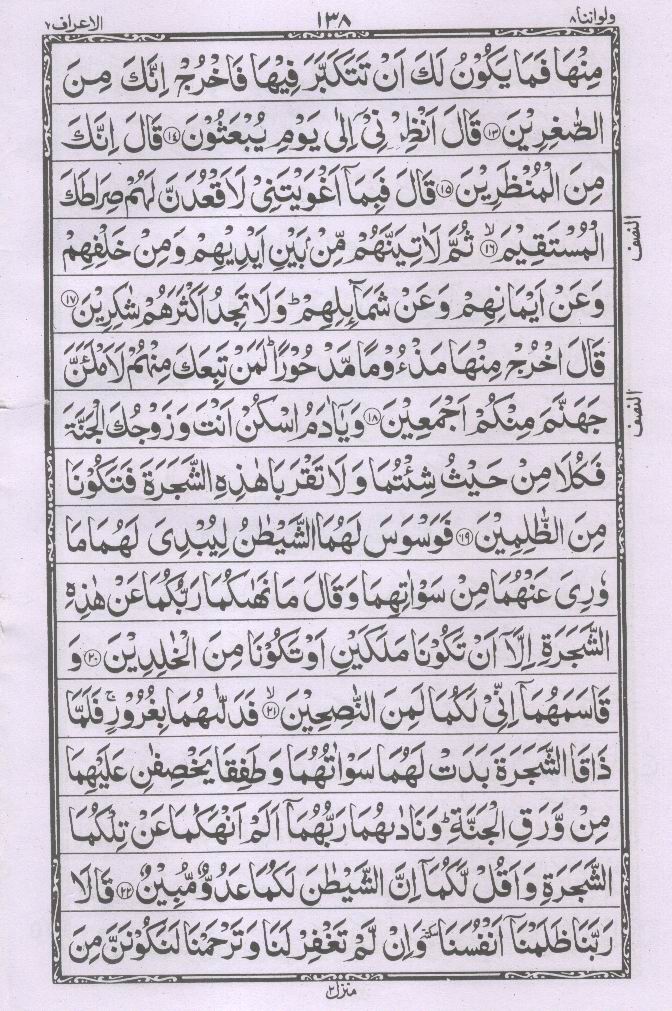 ولواننا ٨
١٣٨
الاعراف ٧
مِنْهَا فَمَا يَكُوْنُ لَكَ اَنْ تَتَكَبَّرَ فِيْهَا فَاخْرُجْ اِنَّكَ مِنَ
الصّٰغِرِيْنَ ﴿١٣﴾ قَالَ اَنْظِرْنِيْٓ اِلٰى يَوْمِ يُبْعَثُوْنَ ﴿١٤﴾ قَالَ اِنَّكَ
مِنَ الْمُنْظَرِيْنَ ﴿١٥﴾ قَالَ فَبِمَآ اَغْوَيْتَنِيْ لَاَقْعُدَنَّ لَهُمْ صِرَاطَكَ
الْمُسْتَقِيْمَ ۙ﴿١٦﴾ ثُمَّ لَاٰتِيَنَّهُمْ مِّنْۢ بَيْنِ اَيْدِيْهِمْ وَمِنْ خَلْفِهِمْ
النصف
وَعَنْ اَيْمَانِهِمْ وَعَنْ شَمَآئِلِهِمْ ؕ وَلَا تَجِدُ اَكْثَرَهُمْ شٰكِرِيْنَ ﴿١٧﴾
قَالَ اخْرُجْ مِنْهَا مَذْءُوْمًا مَّدْحُوْرًا ؕ لَمَنْ تَبِعَكَ مِنْهُمْ لَاَمْلَـَٔنَّ
جَهَنَّمَ مِنْكُمْ اَجْمَعِيْنَ ﴿١٨﴾ وَيٰٓاٰدَمُ اسْكُنْ اَنْتَ وَزَوْجُكَ الْجَنَّةَ
النصف
فَكُلَا مِنْ حَيْثُ شِئْتُمَا وَلَا تَقْرَبَا هٰذِهِ الشَّجَرَةَ فَتَكُوْنَا
مِنَ الظّٰلِمِيْنَ ﴿١٩﴾ فَوَسْوَسَ لَهُمَا الشَّيْطٰنُ لِيُبْدِيَ لَهُمَا مَا
وٗرِيَ عَنْهُمَا مِنْ سَوْاٰتِهِمَا وَقَالَ مَا نَهٰىكُمَا رَبُّكُمَا عَنْ هٰذِهِ
الشَّجَرَةِ اِلَّآ اَنْ تَكُوْنَا مَلَكَيْنِ اَوْ تَكُوْنَا مِنَ الْخٰلِدِيْنَ ﴿٢٠﴾ وَ
قَاسَمَهُمَآ اِنِّيْ لَكُمَا لَمِنَ النّٰصِحِيْنَ ۙ﴿٢١﴾ فَدَلّٰىهُمَا بِغُرُوْرٍ ۚ فَلَمَّا
ذَاقَا الشَّجَرَةَ بَدَتْ لَهُمَا سَوْاٰتُهُمَا وَطَفِقَا يَخْصِفٰنِ عَلَيْهِمَا
مِنْ وَّرَقِ الْجَنَّةِ ؕ وَنَادٰىهُمَا رَبُّهُمَآ اَلَمْ اَنْهَكُمَا عَنْ تِلْكُمَا
الشَّجَرَةِ وَاَقُلْ لَّكُمَآ اِنَّ الشَّيْطٰنَ لَكُمَا عَدُوٌّ مُّبِيْنٌ ﴿٢٢﴾ قَالَا
رَبَّنَا ظَلَمْنَآ اَنْفُسَنَا سكتة وَاِنْ لَّمْ تَغْفِرْ لَنَا وَتَرْحَمْنَا لَنَكُوْنَنَّ مِنَ
منزل ٢